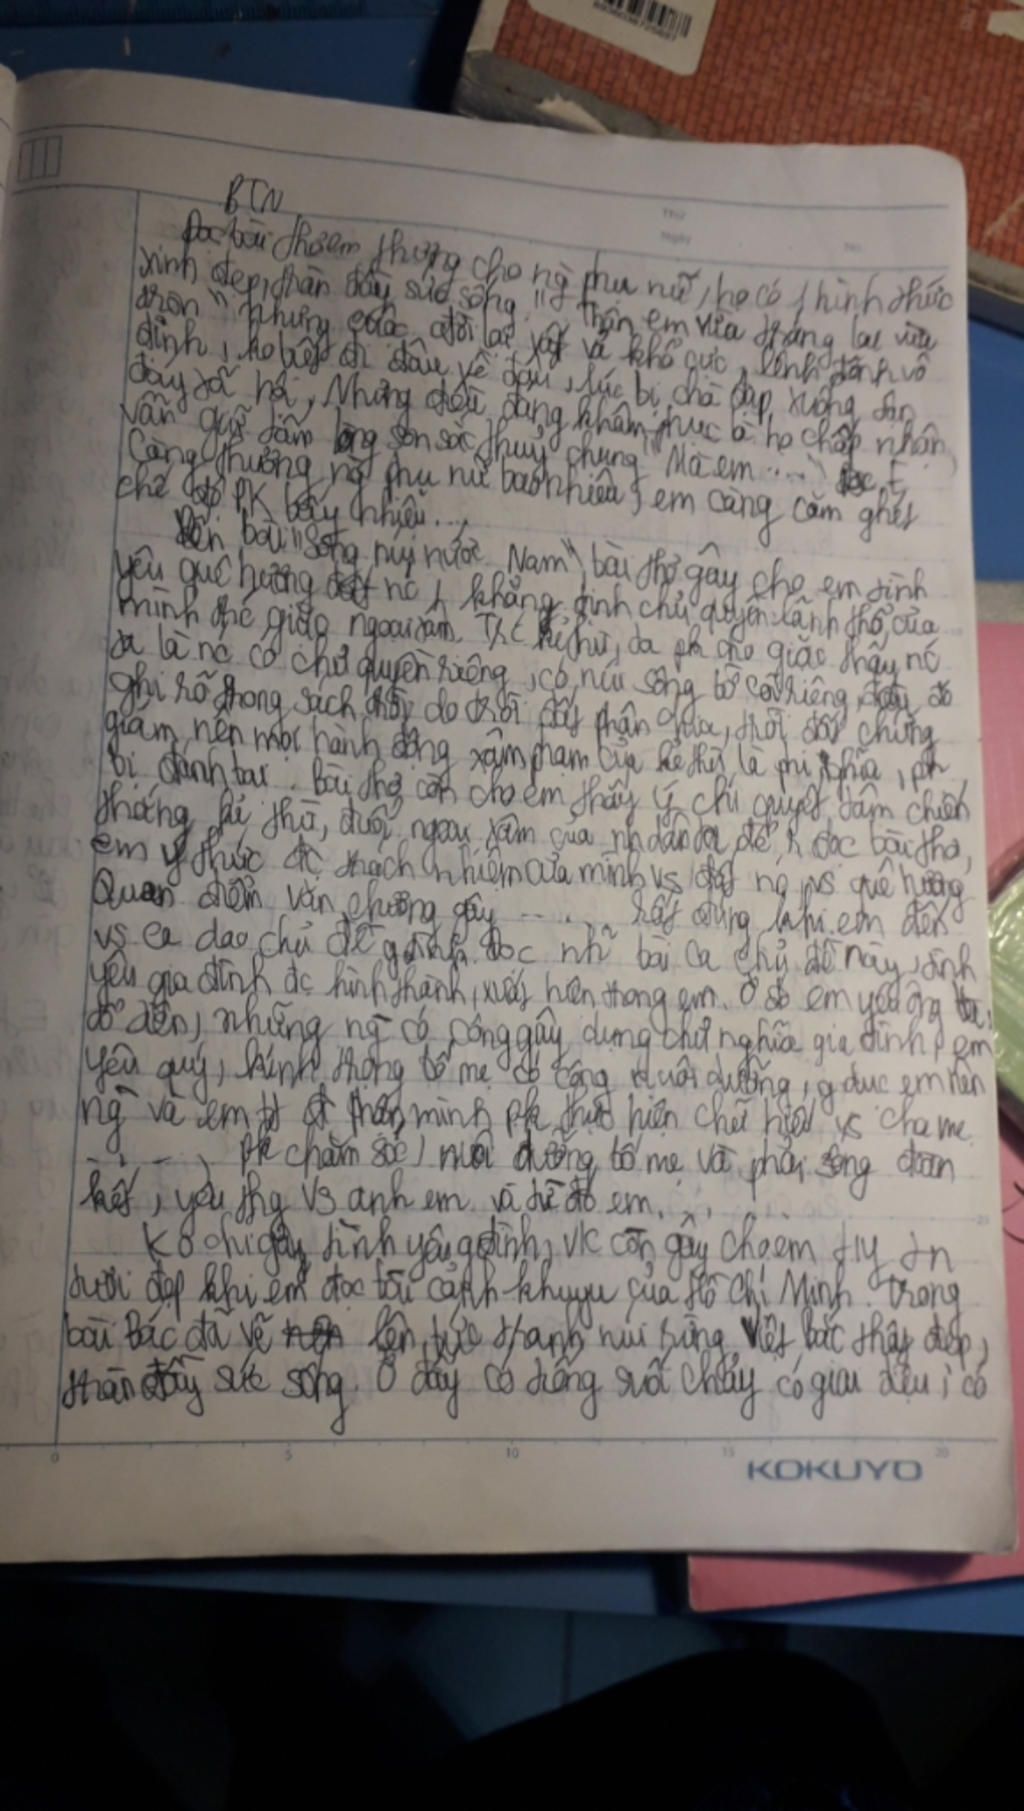 BTN
Đọc bài thơ em thương cho ng phụ nữ, họ có 1 hình thức
xinh đẹp, tràn đầy sức sống "Thân em vừa trắng lại vừa
tròn" nhưng cuộc đời lại vất vả khổ cực, lênh đênh vô
định, ko biết đi đâu về đâu, lúc bị chà đạp xuống tận
đáy xã hội, Nhưng điều đáng khâm phục là họ chấp nhận
vẫn giữ tấm lòng son sắc thuỷ chung "Mà em ..."
Càng thương ng phụ nữ bao nhiêu, em càng căm ghét
chế độ PK bấy nhiêu...
Đến bài "Sông núi nước Nam", bài thơ gây cho em tình
yêu quê hương đất nc, khẳng định chủ quyền lãnh thổ của
mình đc giặc ngoại xâm. Trc kẻ thù, ta ph cho giặc thấy nc
ta là nc có chủ quyền riêng, có núi sông bờ cõi riêng, điều đó
ghi rõ trong sách trời do trời đất phân chia, trời đất chứng
giám, nên mọi hành động xâm phạm của kẻ thù là phi nghĩa, ph
bị đánh bại. Bài thơ còn cho em thấy ý chí quyết tâm chiến
thắng kẻ thù, đuổi ngoại xâm của nhdân ta để đọc bài thơ,
em ý thức đc trách nhiệm của mình vs đất nc, vs quê hương
Quan điểm văn chương gây ..... rất đúng khi em đến
vs ca dao chủ đề g đình. Đọc nh~ bài ca chủ đề này, tình
yêu gia đình đc hình thành, xuất hiện trong em. Ở đó em yêu ông bà,
tổ tiên, những ng có công gây dựng chữ nghĩa gia đình, em
yêu quý, kính trọng bố mẹ có công nuôi dưỡng, g dục em nên
ng và em tự thân mình ph thực hiện chữ hiếu vs cha mẹ
......, ph chăm sóc, nuôi dưỡng bố mẹ và phải sống đoàn
kết, yêu thg vs anh em và từ đó em...
Ko chỉ gây tình yêu g đình, VC còn gây cho em ty tn
tươi đẹp khi em đọc bài cảnh khuya của Hồ Chí Minh. Trong
bài Bác đã vẽ lên bức tranh núi rừng Việt Bắc thật đẹp,
tràn đầy sức sống. Ở đây có tiếng suối chảy có giai điệu, có
0 5 10 15 20
KOKUYO